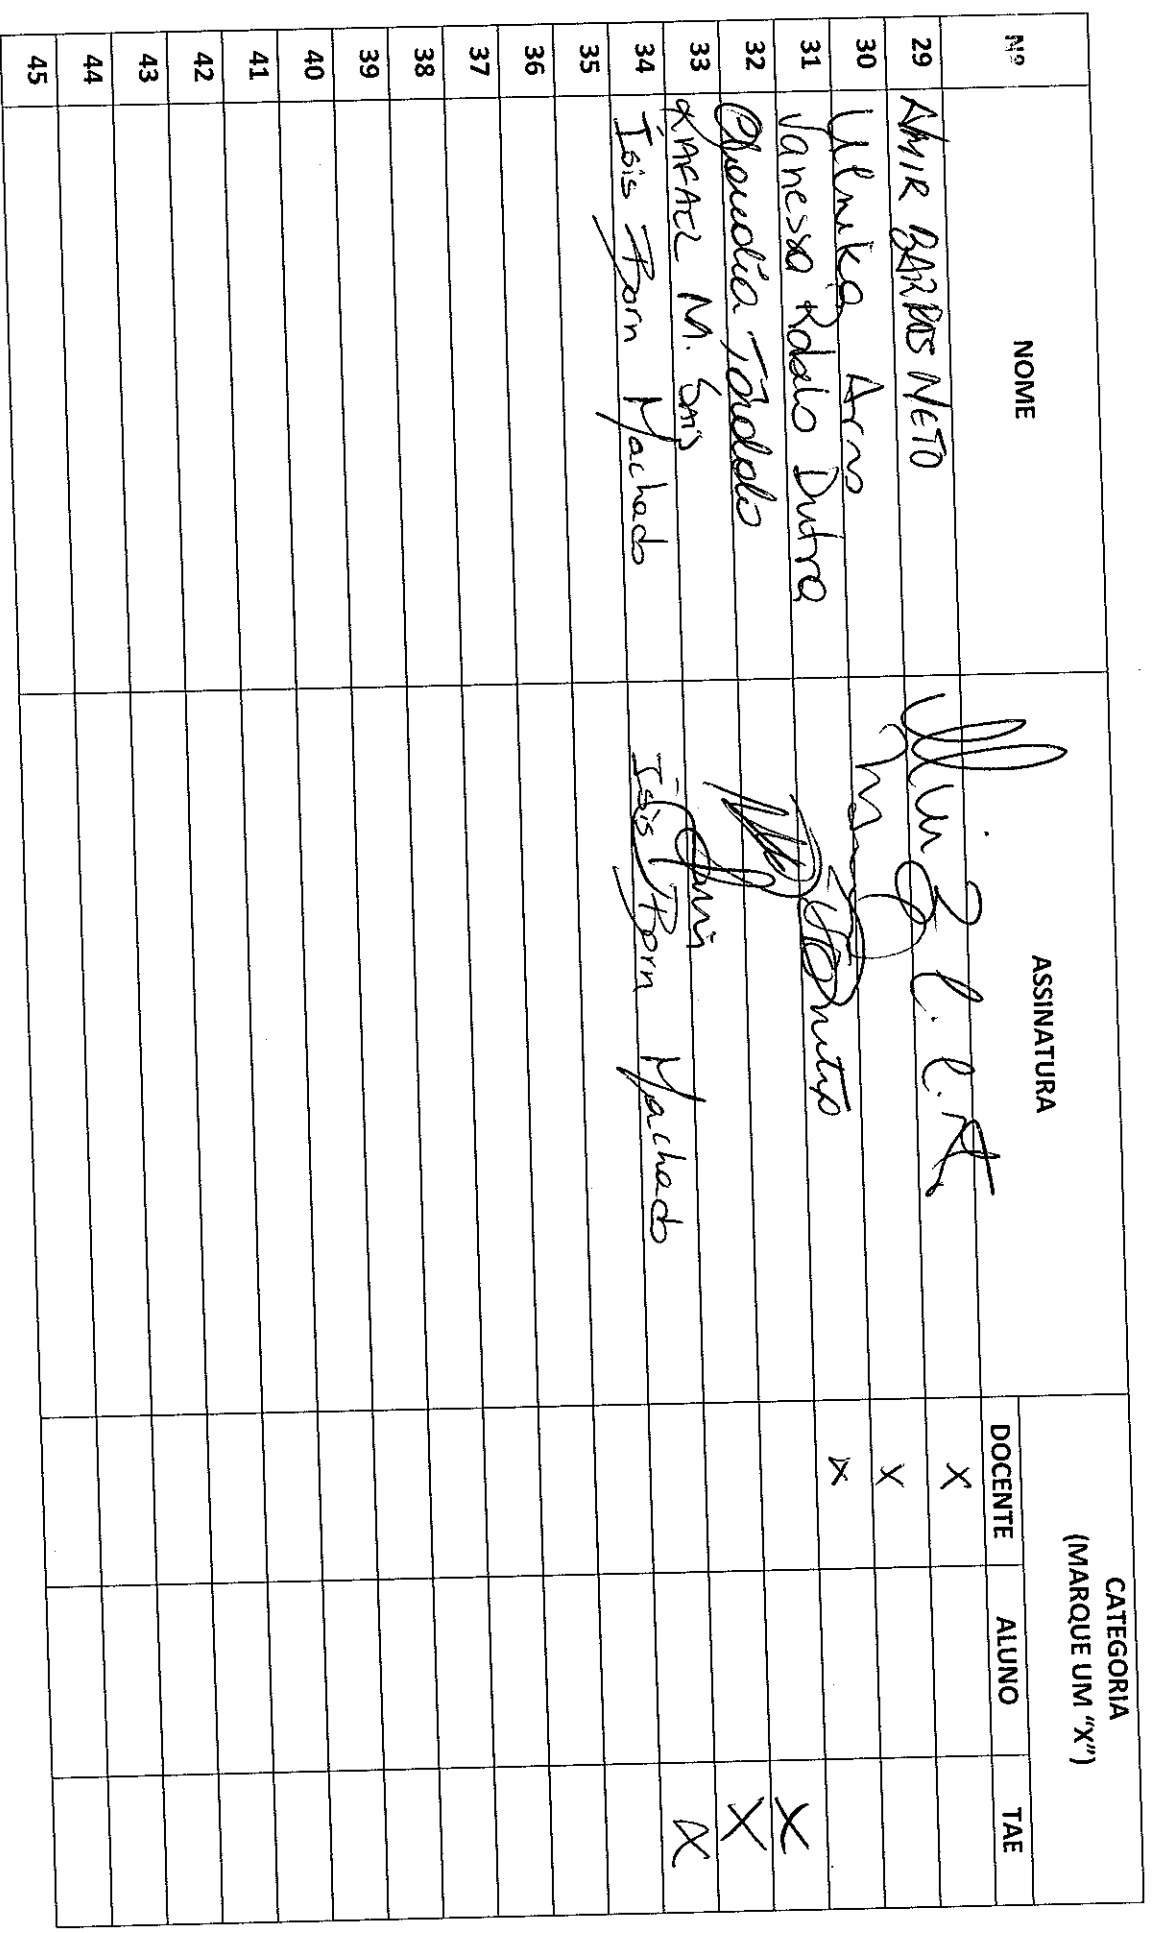 Nº NOME ASSINATURA CATEGORIA
(MARQUE UM "X")
DOCENTE ALUNO TAE
29 AMIR BARROS NETO X
30 Ulrika Arns X
31 Vanessa Rabelo Dutra Dutra X
32 Tondolo X
33 RAFAEL M. X
34 Isis Born Machado Isis Born Machado X
35
36
37
38
39
40
41
42
43
44
45